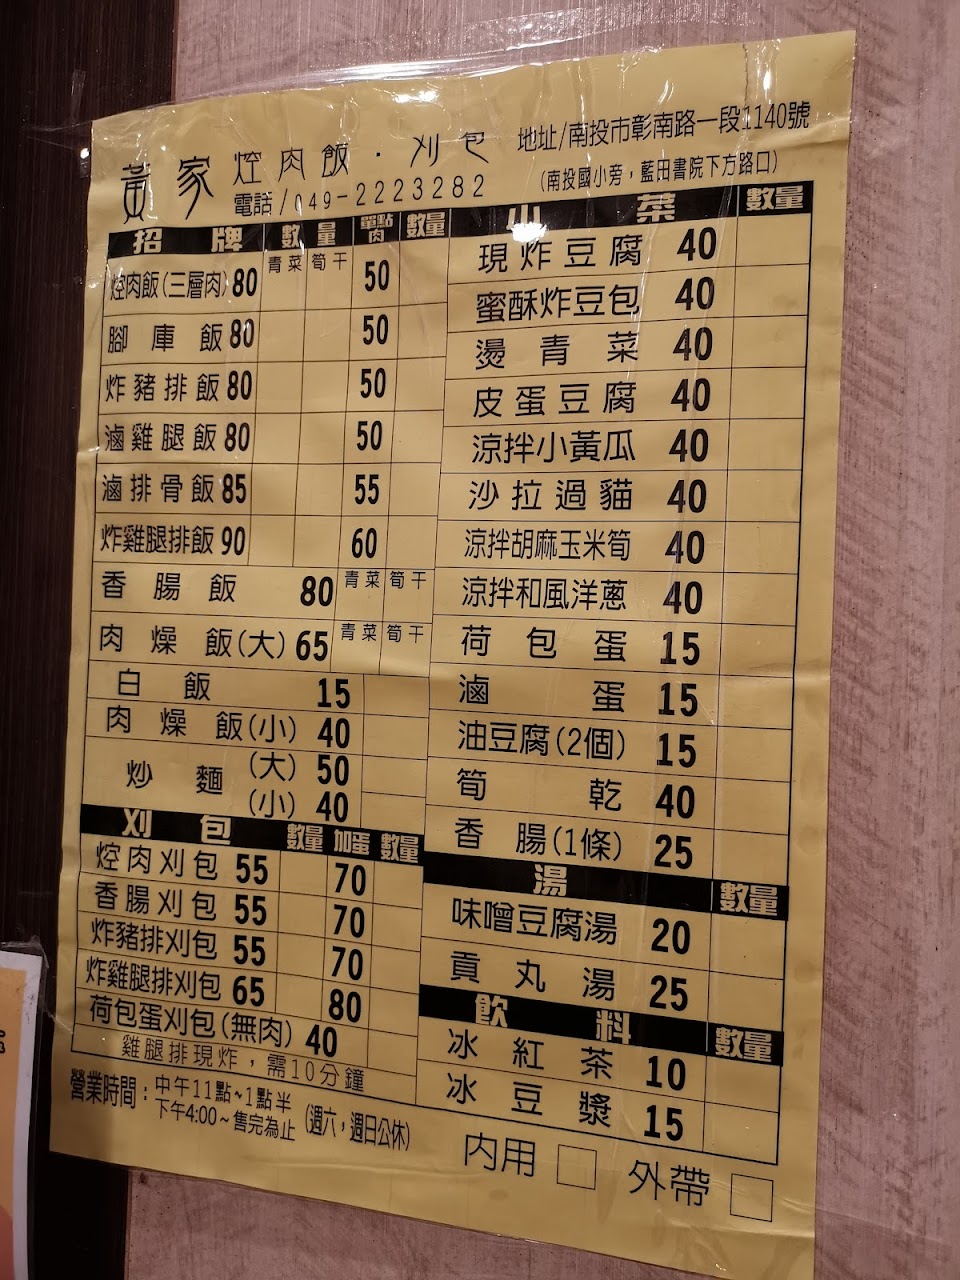 黃家 焢肉飯．刈包
電話/049-2223282
地址/南投市彰南路一段1140號
(南投國小旁，藍田書院下方路口)
招牌 數量 單點肉 數量
青菜 筍干
焢肉飯(三層肉) 80 50
腳庫飯 80 50
炸豬排飯 80 50
滷雞腿飯 80 50
滷排骨飯 85 55
炸雞腿排飯 90 60
香腸飯 80 青菜 筍干
肉燥飯(大) 65 青菜 筍干
白飯 15
肉燥飯(小) 40
炒麵 (大) 50
(小) 40
刈包 數量 加蛋 數量
焢肉刈包 55 70
香腸刈包 55 70
炸豬排刈包 55 70
炸雞腿排刈包 65 80
荷包蛋刈包(無肉) 40
雞腿排現炸，需10分鐘
小菜 數量
現炸豆腐 40
蜜酥炸豆包 40
燙青菜 40
皮蛋豆腐 40
涼拌小黃瓜 40
沙拉過貓 40
涼拌胡麻玉米筍 40
涼拌和風洋蔥 40
荷包蛋 15
滷蛋 15
油豆腐(2個) 15
筍乾 40
香腸(1條) 25
湯 數量
味噌豆腐湯 20
貢丸湯 25
飲料 數量
冰紅茶 10
冰豆漿 15
營業時間：中午11點~1點半
下午4:00~售完為止 (週六，週日公休)
內用 外帶